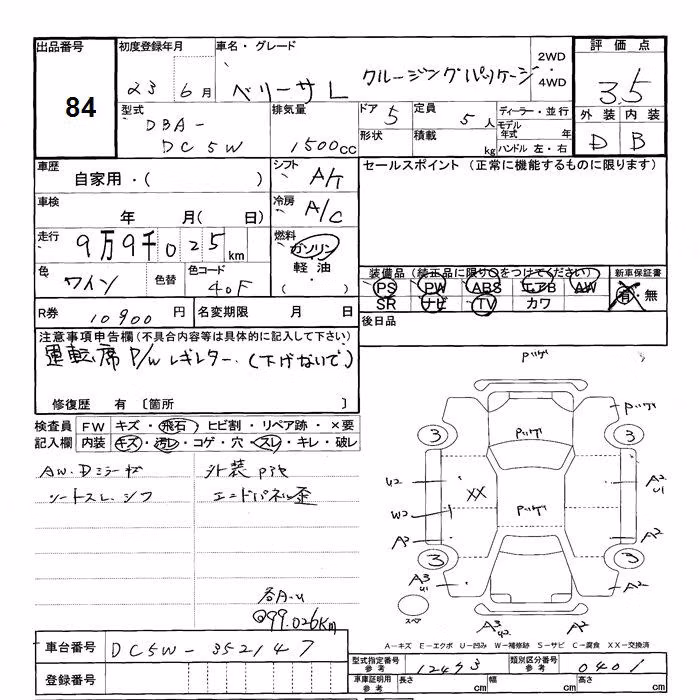 出品番号
84
初度登録年月
23 6月
車名・グレード
ベリーサ L クルージングパッケージ
2WD
・
4WD
評価点
3.5
外装 内装
D B
型式
DBA-
DC5W
排気量
1500cc
ドア 5
形状
定員 5人
積載 kg
ディーラー・並行
モデル
年式 年
ハンドル 左・右
車歴
自家用・( )
シフト A/T
セールスポイント(正常に機能するものに限ります)
車検
年 月( 日)
冷房 A/C
走行 9万9千025km
燃料
ガソリン
軽油
・
( )
色 ワイン
色替
色コード 40F
装備品(純正品に限り○をつけてください)
PS PW ABS エアB AW
SR ナビ TV カワ
新車保証書
有・無
R券 10900円
名変期限 月 日
後日品
注意事項申告欄(不具合内容等は具体的に記入して下さい)
運転席 P/W レギレター.(下げないで)
修復歴 有 〔箇所 〕
検査員
記入欄
FW キズ・飛石・ヒビ割・リペア跡・×要
内装 キズ・汚レ・コゲ・穴・スレ・キレ・破レ
AW.Dミラーキズ
シートスレ.シワ
外装
エンドパネル歪
各A.U
@99.026Km
3
3
3
3
XX
U2
W2
A2
U1
A2
A2
A2
A3
U1
A3
U2
A2
スペア
A-キズ E-エクボ U-凹み W-補修跡 S-サビ C-腐食 XX-交換済
車台番号 DC5W-352147
登録番号
型式指定番号
参考
12493
類別区分番号
参考
0401
車庫証明用
参考
長さ cm
幅 cm
高さ cm